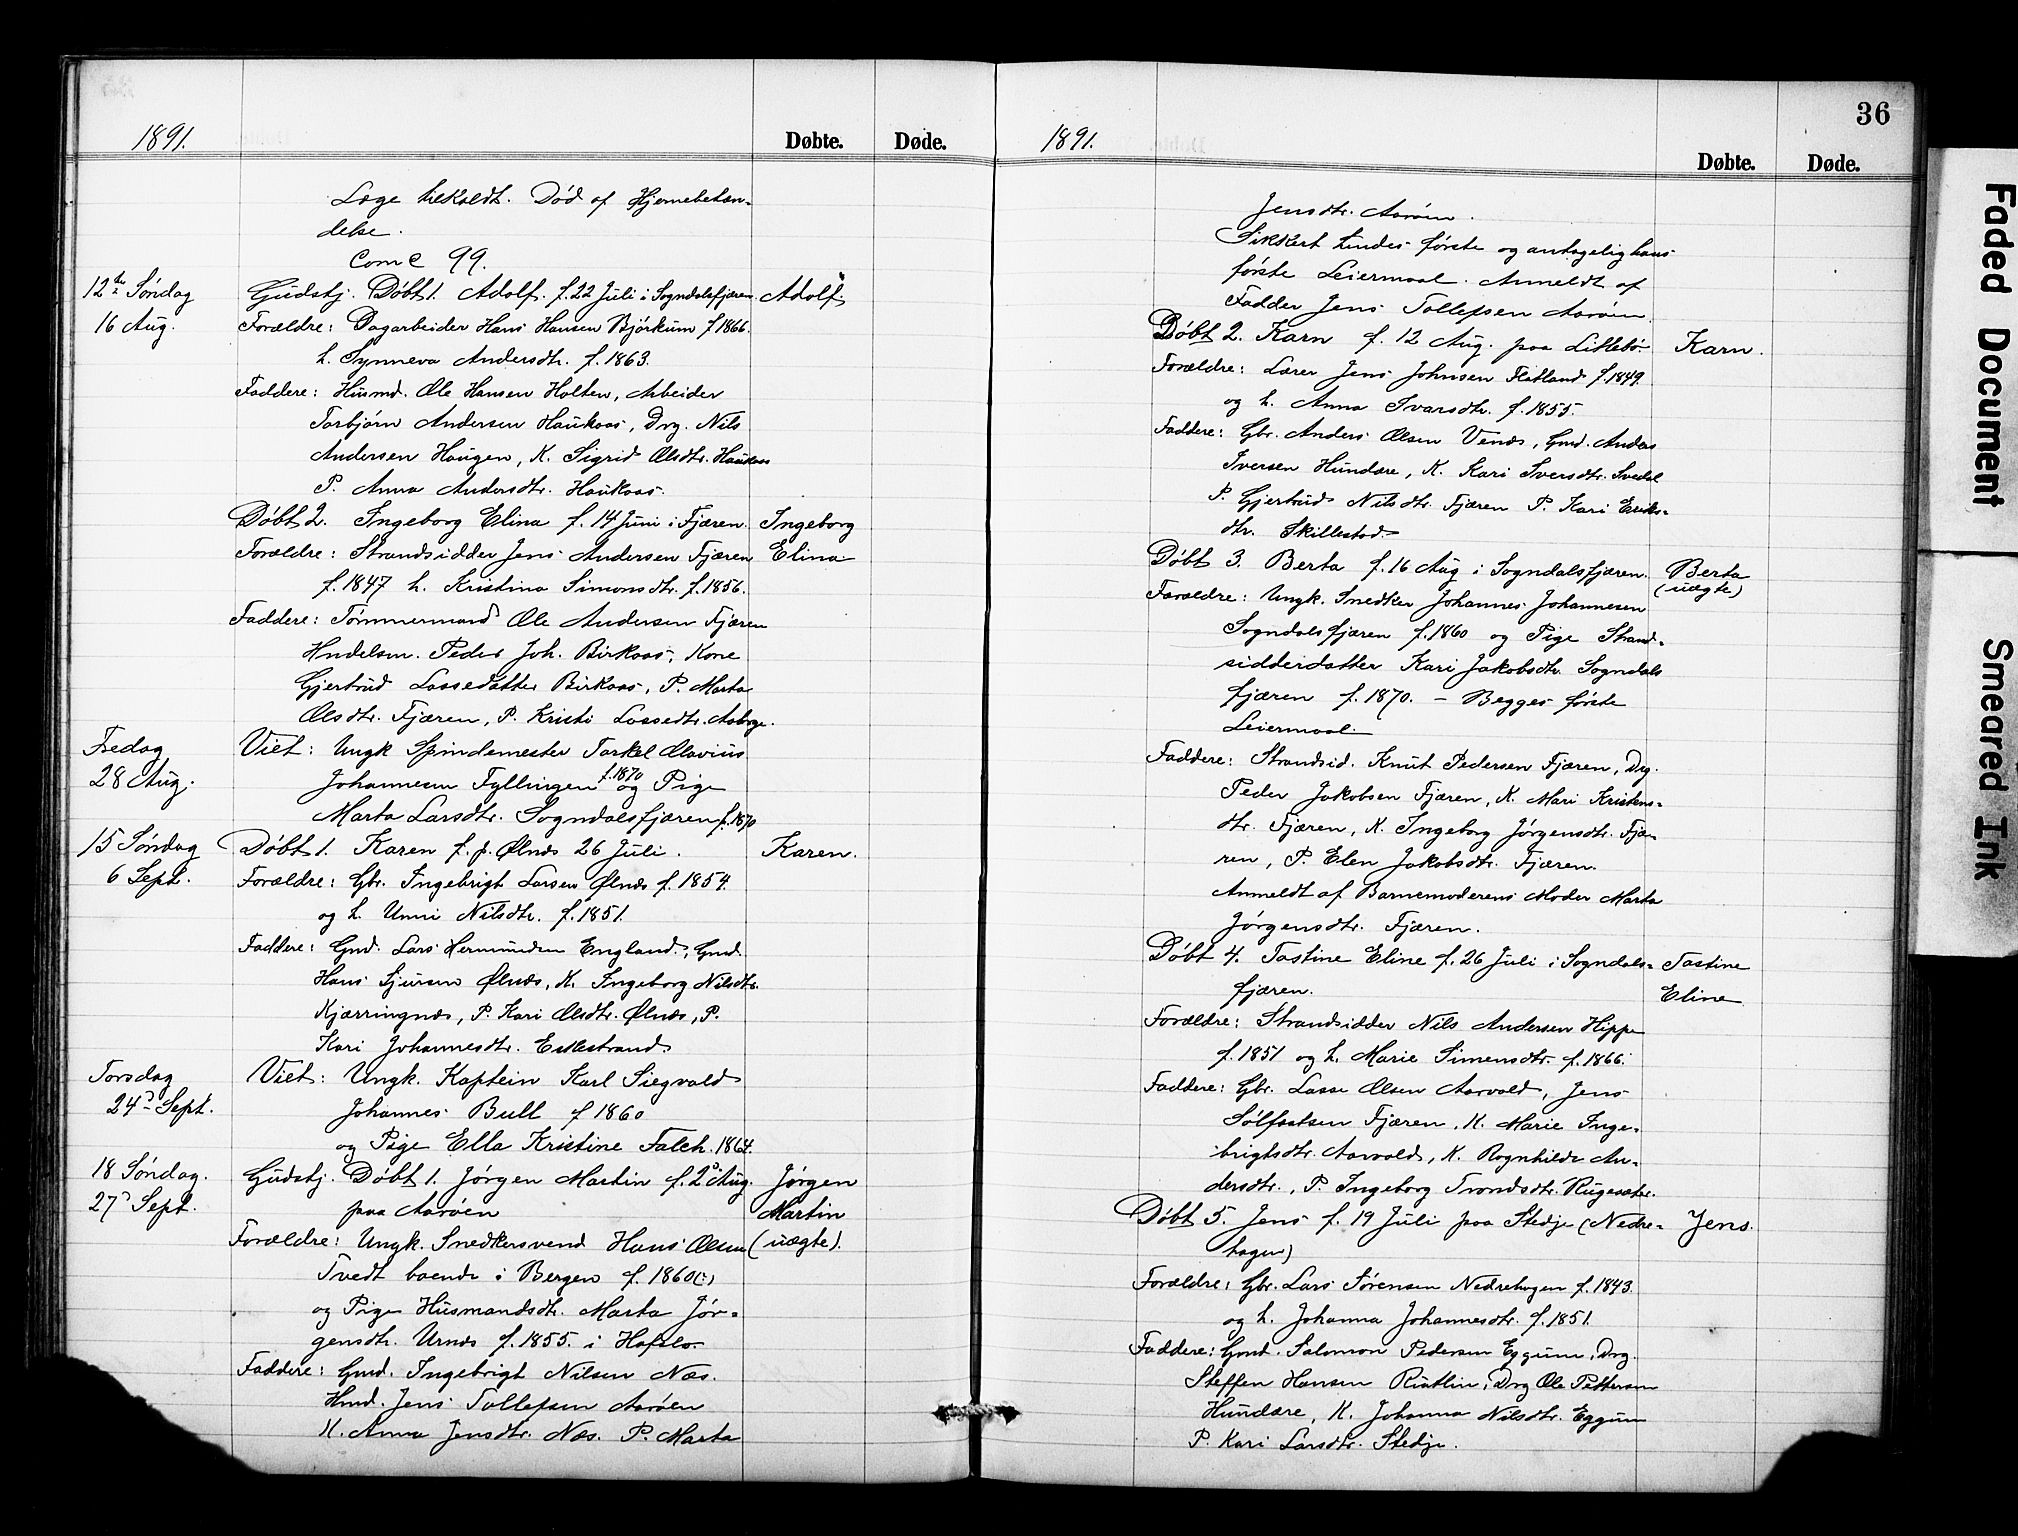 1891.
Døbte.
Døde.
Læge tilkaldt. Død af Hjernebetæn-
delse.
Com c 99.
12te Søndag
16 Aug.
Gudstj. Døbt 1. Adolf. f. 22 Juli i Sogndalsfjæren
Adolf.
Forældre: Dagarbeider Hans Hansen Bjørkum f. 1866.
h. Synneva Andersdtr. f. 1863.
Faddere: Husmd. Ole Hansen Holten, Arbeider
Torbjørn Andersen Haukaas, Drg. Nils
Andersen Haugen, K. Sigrid Olsdtr. Haukaas
P. Anna Andersdtr. Haukaas.
Døbt 2. Ingeborg Elina f. 14 Juni i Fjæren.
Ingeborg
Forældre: Strandsidder Jens Andersen Fjæren
Elina
f. 1847 h. Kristina Simonsdtr. f. 1856.
Faddere: Tømmermand Ole Andersen Fjæren
Hndelsm. Peder Joh. Birkaas, Kone
Gjertrud Lassedatter Birkaas, P. Marta
Olsdtr. Fjæren, P. Kristi Lassedtr.
Fredag
28 Aug.
Viet: Ungk Spindemester Torkel Olavius
Johannesen Fyllingen f. 1870 og Pige
Marta Larsdtr. Sogndalsfjæren f. 1870
15 Søndag
6 Sept.
Døbt 1. Karen f. p. Ølnæs 26 Juli.
Karen.
Forældre: Gbr. Ingebrigt Larsen Ølnæs f. 1854.
og h. Unni Nilsdtr. f. 1851.
Faddere: Gmd. Lars Hermundsen England, Gmd.
Hans Sjursen Ølnæs, K. Ingeborg Nilsdtr.
Kjærringnæs, P. Kari Olsdtr. Ølnæs, P.
Kari Johannesdtr. Eskestrand
Torsdag
24d Sept.
Viet: Ungk. Kaptein Karl Siegvald
Johannes Bull f 1860
og Pige Ella Kristine Falch. 1864.
18 Søndag.
27d Sept.
Gudstj. Døbt 1. Jørgen Martin f. 2d Aug.
Jørgen
paa Aarøen
Martin
Forældre: Ungk. Snedkersvend Hans Olsen
(uægte).
Tvedt boende i Bergen f. 1860(?)
og Pige Husmandsdtr. Marta Jør-
gensdtr. Urnæs f. 1855. i Hafslo.
Faddere: Gmd. Ingebrigt Nilsen Næs.
Hmd. Jens Tollefsen Aarøen
K. Anna Jensdtr. Næs. P. Marta
36
1891.
Døbte.
Døde.
Jensdtr. Aarøen.
Sikkert hendes første og antagelig hans
første Leiermaal. Anmeldt af
Fadder Jens Tollefsen Aarøen.
Døbt 2. Karn f. 12 Aug. paa Littebø.
Karn.
Forældre: Lærer Jens Johnsen Flatland f. 1849.
og h. Anna Ivarsdtr. f. 1855.
Faddere: Gbr. Anders Olsen Venæs, Gmd. Anders
Iversen Hundære, K. Kari Iversdtr. Svedal
P. Gjertrud Nilsdtr. Fjæren P. Kari Eriks-
dtr. Skillestad
Døbt 3. Berta f. 16 Aug i Sogndalsfjæren.
Berta
(uægte)
Forældre: Ungk. Snedker Johannes Johannesen
Sogndalsfjæren f. 1860 og Pige Strand-
sidderdatter Kari Jakobsdtr. Sogndals
fjæren f. 1870. – Begges første
Leiermaal.
Faddere: Strandsid. Knut Pedersen Fjæren, Drg.
Peder Jakobsen Fjæren, K. Mari Kristens-
dtr. Fjæren, K. Ingeborg Jørgensdtr. Fjæ-
ren, P. Elen Jakobsdtr. Fjæren.
Anmeldt af Barnemoderens Moder Marta
Jørgensdtr. Fjæren.
Døbt 4. Tastine Eline f. 26 Juli i Sogndals-
Tastine
fjæren.
Eline
Forældre: Strandsidder Nils Andersen Hippe
f. 1851 og h. Marie Simensdtr. f. 1866.
Faddere: Gbr. Lasse Olsen Aarvold, Jens
Sølfæstsen Fjæren, K. Marie Inge-
brigtsdtr. Aarvold, K. Rognhilde An-
dersdtr., P. Ingeborg Trondsdtr.
Døbt 5. Jens f. 19 Juli paa Stedje (Nedre-
Jens.
hagen)
Forældre: Gbr. Lars Sørensen Nedrehagen f. 1843.
og h. Johanna Johannesdtr. f. 1851.
Faddere: Gmd. Salomon Pedersen Eggum, Drg.
Steffen Hansen Rutlin, Drg Ole Pettersen
Hundære, K. Johanna Nilsdtr. Eggum
P. Kari Larsdtr. Stedje.
Faded Document
Smeared Ink